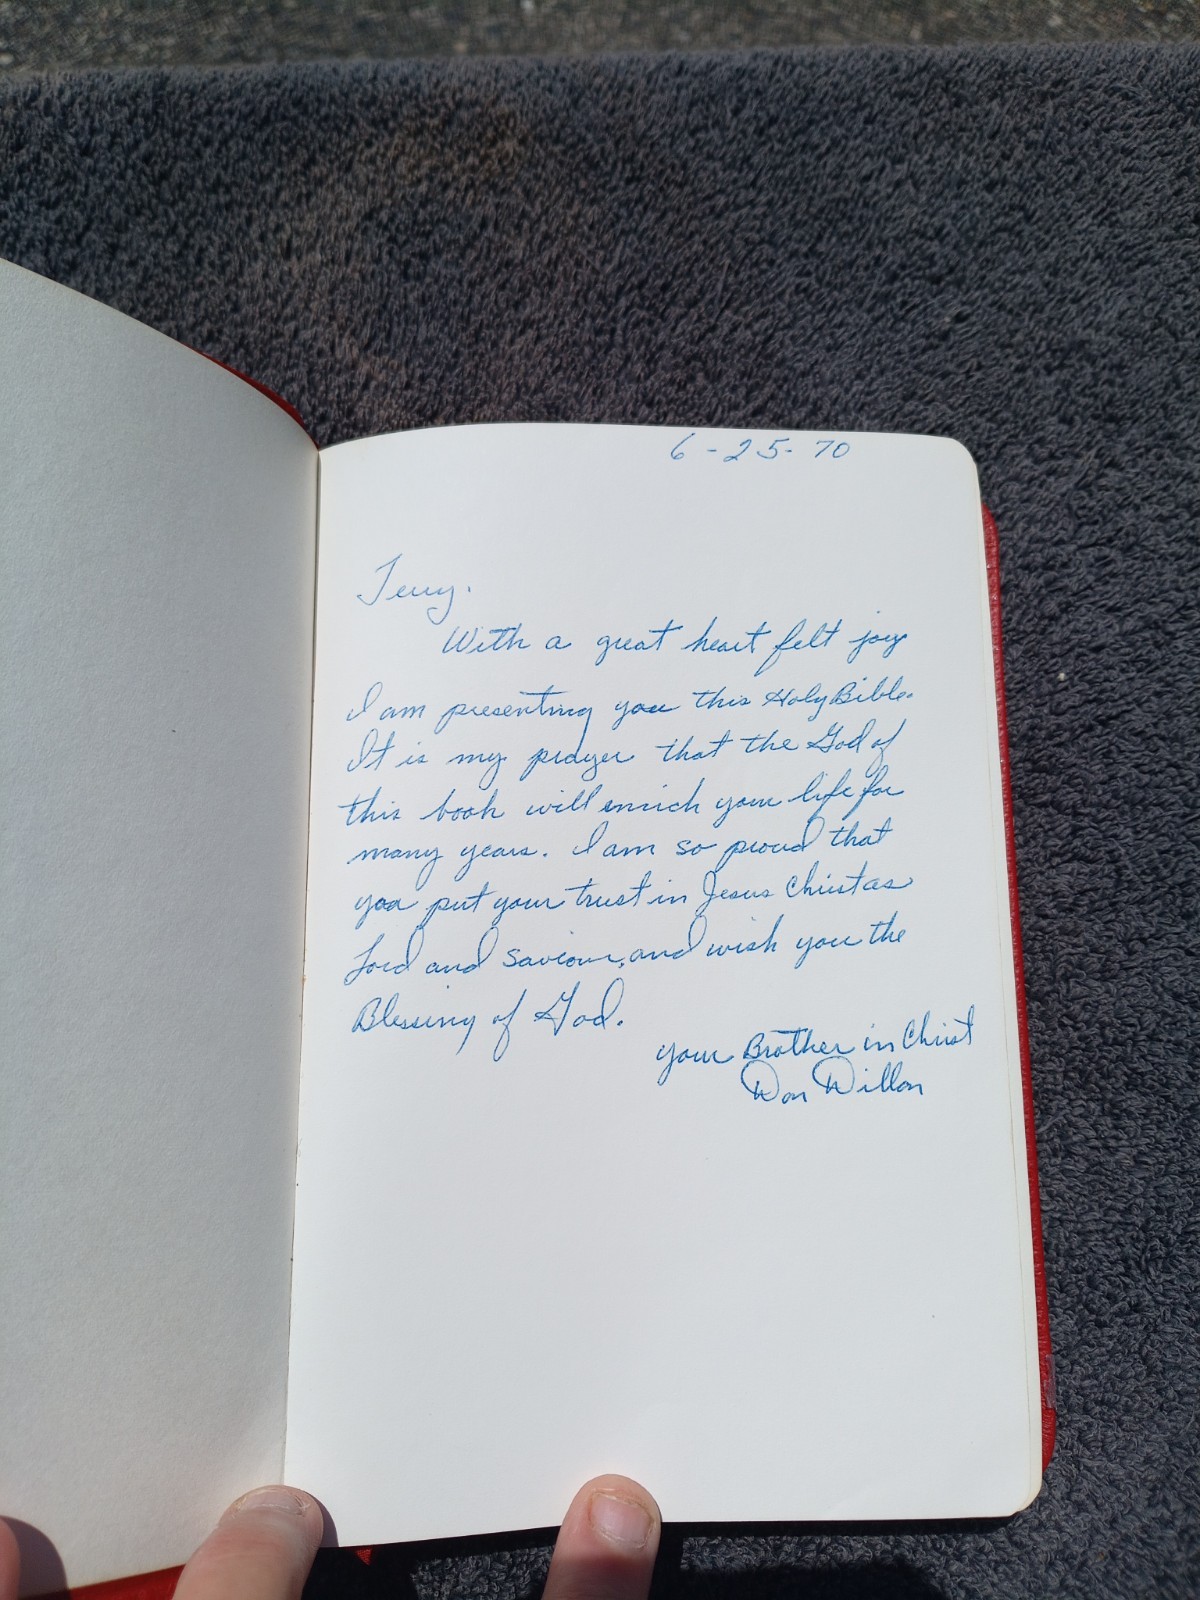 6-25-70
Terry.
With a great heart felt joy
I am presenting you this Holy Bible.
It is my prayer that the God of
this book will enrich your life for
many years. I am so proud that
you put your trust in Jesus Christ as
Lord and Saviour, and wish you the
Blessing of God.
your Brother in Christ
Don Dillon